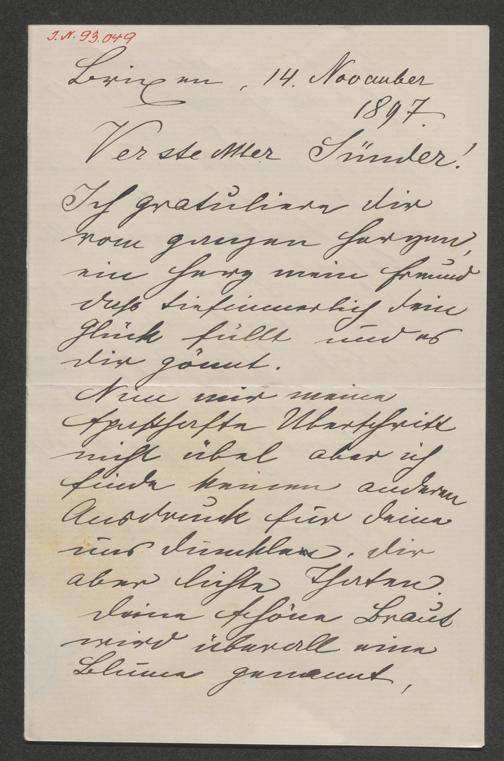 J.N. 93.049
Brixen, 14. November
1897.
Versteckter Sünder!
Ich gratuliere dir
vom ganzen Herzen,
ein Herz mein Freund
daß tiefinnerlich dein
Glück fühlt und es
dir gönnt.
Nim mir meine
spaßhafte Uberschrift
nicht übel aber ich
finde keinen anderen
Ausdruck für deine
uns dunklen, dir
aber lichte Thaten.
Deine schöne Braut
wird überall eine
Blume genannt,